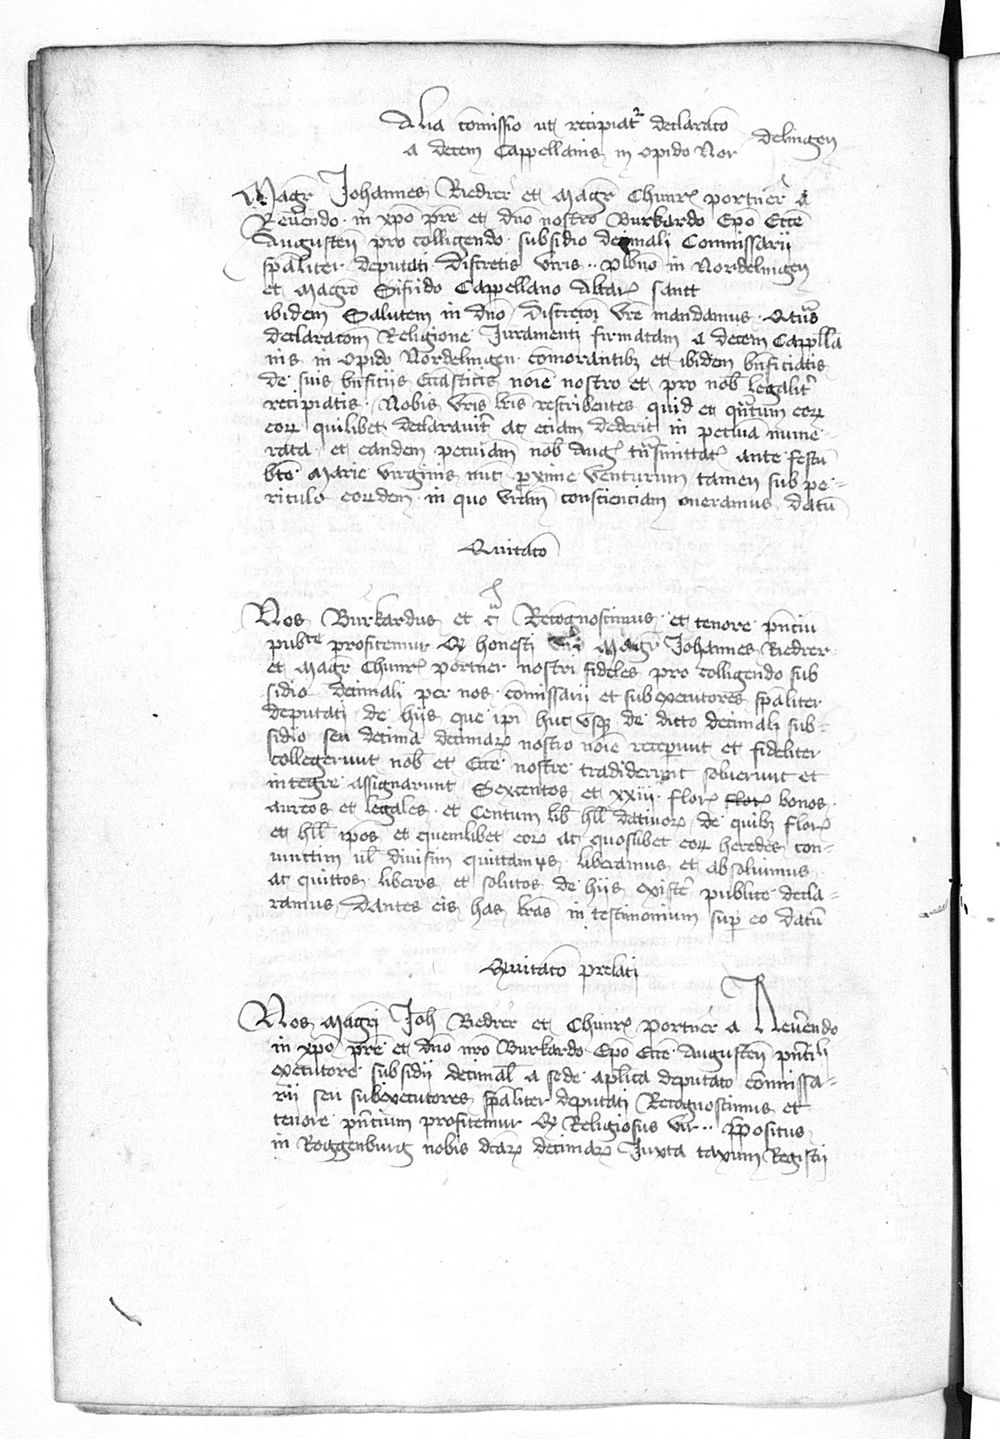 Alia com̄issio ut recipiat᷑ declarac̄o
a decem Cappellanis in opido Nor delingen
Mag̅r Johannes Riedrer et mag̅r Chunr̄ portner a
Reuendo in xp̄o pr̄e et dn̄o nostro Burkardo Ep̄o Ecc̄e
Augusten̄ pro colligendo subsidio decimali Commissarii
sp̄aliter deputati Discretis viris ·· pleb̄no in Nordelingen
et mag̅ro Sifrido Cappellano Altar̄ sanct
ibidem Salutem in dn̄o Discrec̄oi vr̄e mandamus Qt̄us
declarac̄om Religione Iuramenti firmatam a decem Cappll̄a
nis in opido Nordelingen com̄orantibꝫ et ibidem bn̄ficiatis
de suis bn̄ficijs Ecc̄asticis noīe nostro et pro nob̄ legalit̄
recipiatis Nobis vr̄is lr̄is rescribentes quid et qn̄tum eoꝝ
eoꝝ quilibet declarauit̄ ac eciam dederit in pecu̅a nume-
rata et eandem pecuniam nob̄ Aug̅ tn̄smittat̄ ante festū
bt̄e Marie virginis nūc pxime venturum tamen sub pe-
riculo eorūdem in quo vr̄am conscienciam oneramus datū
Quitac̄o
Nos Burkardus et c̄ Recognoscimus et tenore pn̄ciū
publ̄ce profitemur Qꝫ honesti viri Mag̅r Johannes Riedrer
et Mag̅r Chunr̄ portner nostri fideles pro colligendo sub
sidio decimali per nos com̄issarii et subexecutores sp̄aliter
deputati de hijs que ip̄i huc usqꝫ de dicto decimali sub-
sidio seu decima decimaꝝ nostro noīe receperunt et fideliter
collegerunt nob̄ et Ecc̄e nostre tradiderunt soluerunt et
integre assignarunt Sexcentos et xxiij flor̄ flor̄ bonos
aureos et legales et Centum lib̄ hll̄ datiuoꝝ de quibꝫ flor̄
et hll̄ ip̄os et quemlibet eoꝝ ac quoslibet eoꝝ heredes con-
iunctim ul̄ diuisim quittamus liberamus et absoluimus
ac quittos liberos et solutos de hijs exister̄ publice decla-
ramus Dantes eis has lr̄as in testimonium sup̄ eo datū
Quitac̄o prelati
Nos mag̅ri Joh̄ Riedrer et Chunr̄ portner a Reuendo
in xp̄o pr̄e et dn̄o nr̄o Burkardo Ep̄o Ecc̄e Augusten̄ pn̄cīli
executore subsidij decimal̄ a sede ap̄lica deputato com̄issa-
rij seu subexecutores sp̄aliter deputati Recognoscimus et
tenore pn̄cium profitemur Qꝫ Religiosus vir ·· pp̄ositus
in Roggenburg nobis dc̄aꝝ decimaꝝ Iuxta taxum Registri